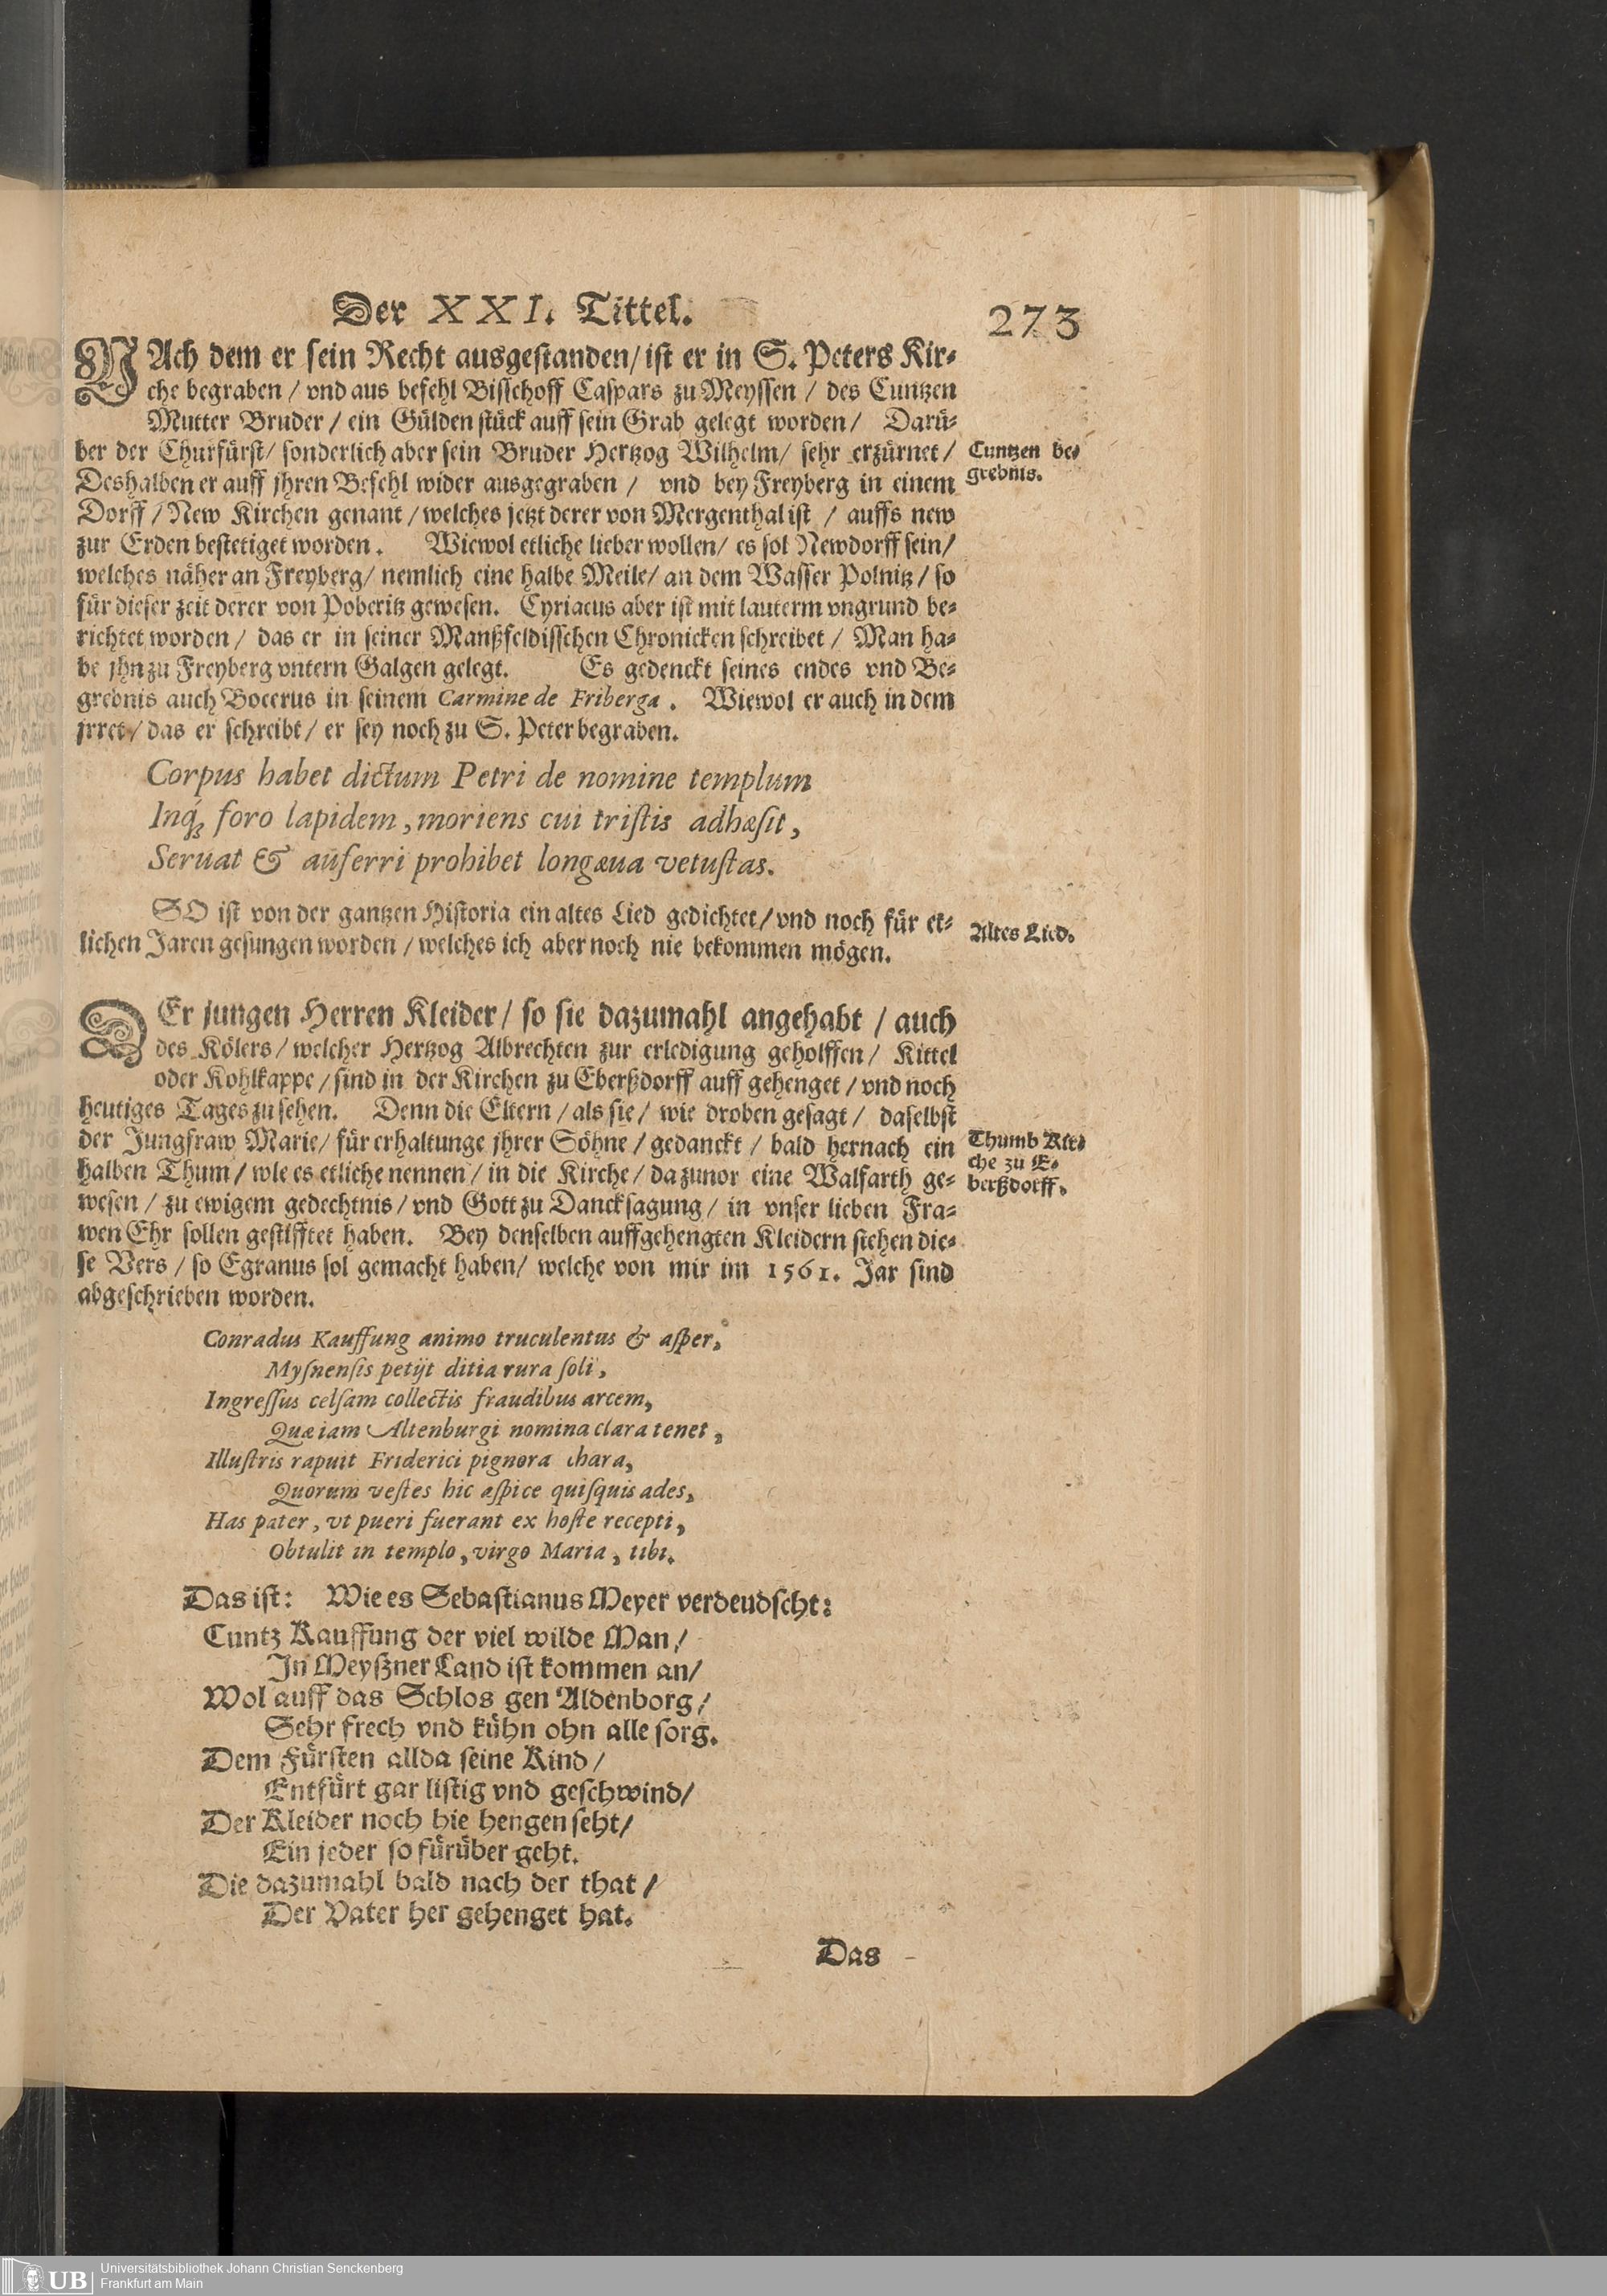 Der XXI. Tittel.
273
NAch dem er sein Recht ausgestanden/ ist er in S. Peters Kir⸗
che begraben / vnd aus befehl Bisschoff Caspars zu Meyssen / des Cuntzen
Mutter Bruder / ein Gülden stück auff sein Grab gelegt worden / Darü⸗
ber der Churfürst/ sonderlich aber sein Bruder Hertzog Wilhelm/ sehr erzürnet /
Cuntzen be⸗
grebnis.
Deshalben er auff jhren Befehl wider ausgegraben / vnd bey Freyberg in einem
Dorff / New Kirchen genant / welches jetzt derer von Mergenthal ist / auffs new
zur Erden bestetiget worden. Wiewol etliche lieber wollen/ es sol Newdorff sein/
welches näher an Freyberg/ nemlich eine halbe Meile/ an dem Wasser Polnitz / so
für dieser zeit derer von Poberitz gewesen. Cyriacus aber ist mit lauterm vngrund be⸗
richtet worden / das er in seiner Manßfeldisschen Chronicken schreibet / Man ha⸗
be jhn zu Freyberg vntern Galgen gelegt. Es gedenckt seines endes vnd Be⸗
grebnis auch Bocerus in seinem Carmine de Friberga. Wiewol er auch in dem
jrret / das er schreibt / er sey noch zu S. Peter begraben.
Corpus habet dictum Petri de nomine templum
Inq́; foro lapidem, moriens cui tristis adhæsit,
Seruat & auferri prohibet longæua vetustas.
SO ist von der gantzen Historia ein altes Lied gedichtet/ vnd noch für et⸗
lichen Jaren gesungen worden / welches ich aber noch nie bekommen mögen.
Altes Lied.
DEr jungen Herren Kleider / so sie dazumahl angehabt / auch
des Kölers / welcher Hertzog Albrechten zur erledigung geholffen / Kittel
oder Kohlkappe / sind in der Kirchen zu Eberßdorff auff gehenget / vnd noch
heutiges Tages zu sehen. Denn die Eltern / als sie / wie droben gesagt / daselbst
der Jungfraw Marie/ für erhaltunge jhrer Söhne / gedanckt / bald hernach ein
Thumb Kir⸗
che zu E⸗
berßdorff.
halben Thum / wie es etliche nennen / in die Kirche / da zuuor eine Walfarth ge⸗
wesen / zu ewigem gedechtnis / vnd Gott zu Dancksagung / in vnser lieben Fra⸗
wen Ehr sollen gestifftet haben. Bey denselben auffgehengten Kleidern stehen die⸗
se Vers / so Egranus sol gemacht haben/ welche von mir im 1561. Jar sind
abgeschrieben worden.
Conradus Kauffung animo truculentus & asper,
Mysnensis petijt ditia rura soli,
Ingressus celsam collectis fraudibus arcem,
Quæ iam Altenburgi nomina clara tenet,
Illustris rapuit Friderici pignora chara,
Quorum vestes hic aspice quisquis ades,
Has pater, vt pueri fuerant ex hoste recepti,
Obtulit in templo, virgo Maria, tibi.
Das ist: Wie es Sebastianus Meyer verdeudscht:
Cuntz Kauffung der viel wilde Man /
In Meyßner Land ist kommen an/
Wol auff das Schlos gen Aldenborg /
Sehr frech vnd kühn ohn alle sorg.
Dem Fürsten allda seine Kind /
Entfürt gar listig vnd geschwind/
Der Kleider noch hie hengen seht/
Ein jeder so fürüber geht.
Die dazumahl bald nach der that /
Der Vater her gehenget hat.
Das
UB
Universitätsbibliothek Johann Christian Senckenberg
Frankfurt am Main